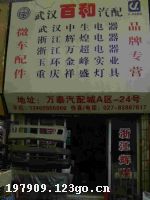 武汉百和汽配
微车配件
武汉中生电器
浙江辉煌电器
浙江万超电器
玉环金盛实业
重庆祥峰灯具
品牌专营
地址：万泰汽配城A区-24号
浙江辉煌
197909.123go.cn